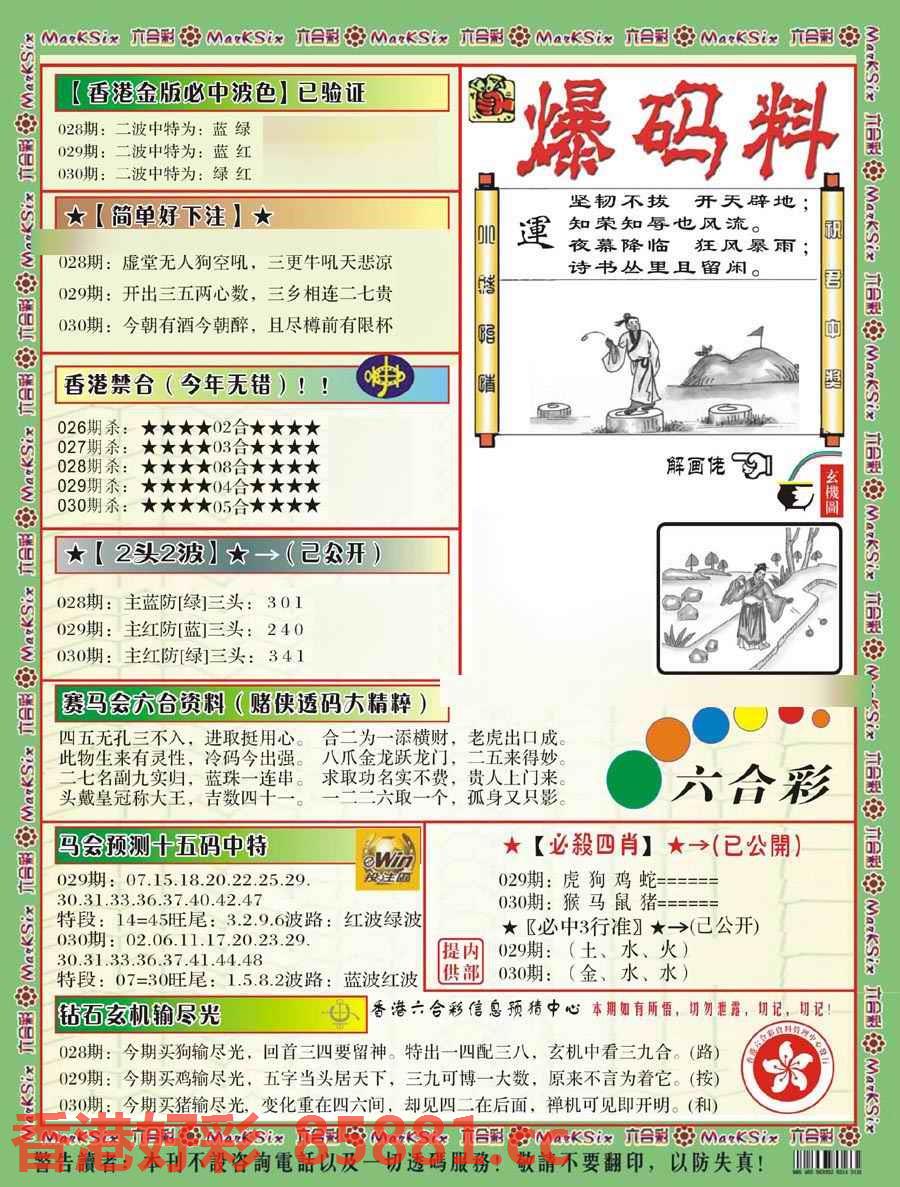 MarKSix 六合彩 MarKSix 六合彩 MarKSix 六合彩 MarKSix 六合彩 MarKSix 六合彩
【香港金版必中波色】已验证
028期：二波中特为：蓝 绿
029期：二波中特为：蓝 红
030期：二波中特为：绿 红
★【简单好下注】★
028期：虚堂无人狗空吼，三更牛吼天悲凉
029期：开出三五两心数，三乡相连二七贵
030期：今朝有酒今朝醉，且尽樽前有限杯
香港禁合（今年无错）！！
026期杀：★★★★02合★★★★
027期杀：★★★★03合★★★★
028期杀：★★★★08合★★★★
029期杀：★★★★04合★★★★
030期杀：★★★★05合★★★★
★【 2头2波】★→（已公开）
028期：主蓝防[绿]三头：301
029期：主红防[蓝]三头：240
030期：主红防[绿]三头：341
爆码料
運
坚韧不拔 开天辟地；
知荣知辱也风流。
夜幕降临 狂风暴雨；
诗书丛里且留闲。
祝君中奖
解画佬
玄機圖
赛马会六合资料（赌侠透码大精粹）
四五无孔三不入，进取挺用心。 合二为一添横财，老虎出口成。
此物生来有灵性，冷码今出强。 八爪金龙跃龙门，二五来得妙。
二七名副九实归，蓝珠一连串。 求取功名实不费，贵人上门来。
头戴皇冠称大王，吉数四十一。 一二二六取一个，孤身又只影。
六合彩
马会预测十五码中特
eWin
投注區
029期：07.15.18.20.22.25.29.
30.31.33.36.37.40.42.47
特段：14=45旺尾：3.2.9.6波路：红波绿波
030期：02.06.11.17.20.23.29.
30.31.33.36.37.41.44.48
特段：07=30旺尾：1.5.8.2波路：蓝波红波
★【必殺四肖】★→(已公開)
029期：虎 狗 鸡 蛇======
030期：猴 马 鼠 猪======
★〖必中3行准〗★→(已公开)
029期：（土、水、火）
030期：（金、水、水）
提内
供部
钻石玄机输尽光
香港六合彩信息预猜中心 本期如有所悟，切勿泄露，切记，切记！
028期：今期买狗输尽光，回首三四要留神。特出一四配三八，玄机中看三九合。(路)
029期：今期买鸡输尽光，五字当头居天下，三九可博一大数，原来不言为着它。(按)
030期：今期买猪输尽光，变化重在四六间，却见四二在后面，禅机可见即开明。(和)
香港好彩 85881.cc
警告讀者：本刊不設咨詢電話以及一切透碼服務！敬請不要翻印，以防失真！